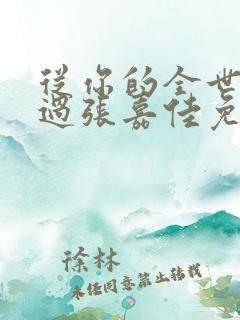 從你的全世
過張嘉佳免
徐林
未任同意禁止转载